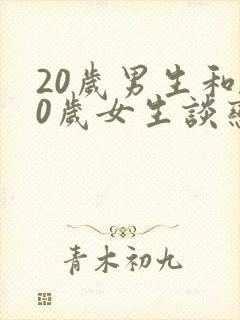 20歲男生和
0歲女生談
青木初九